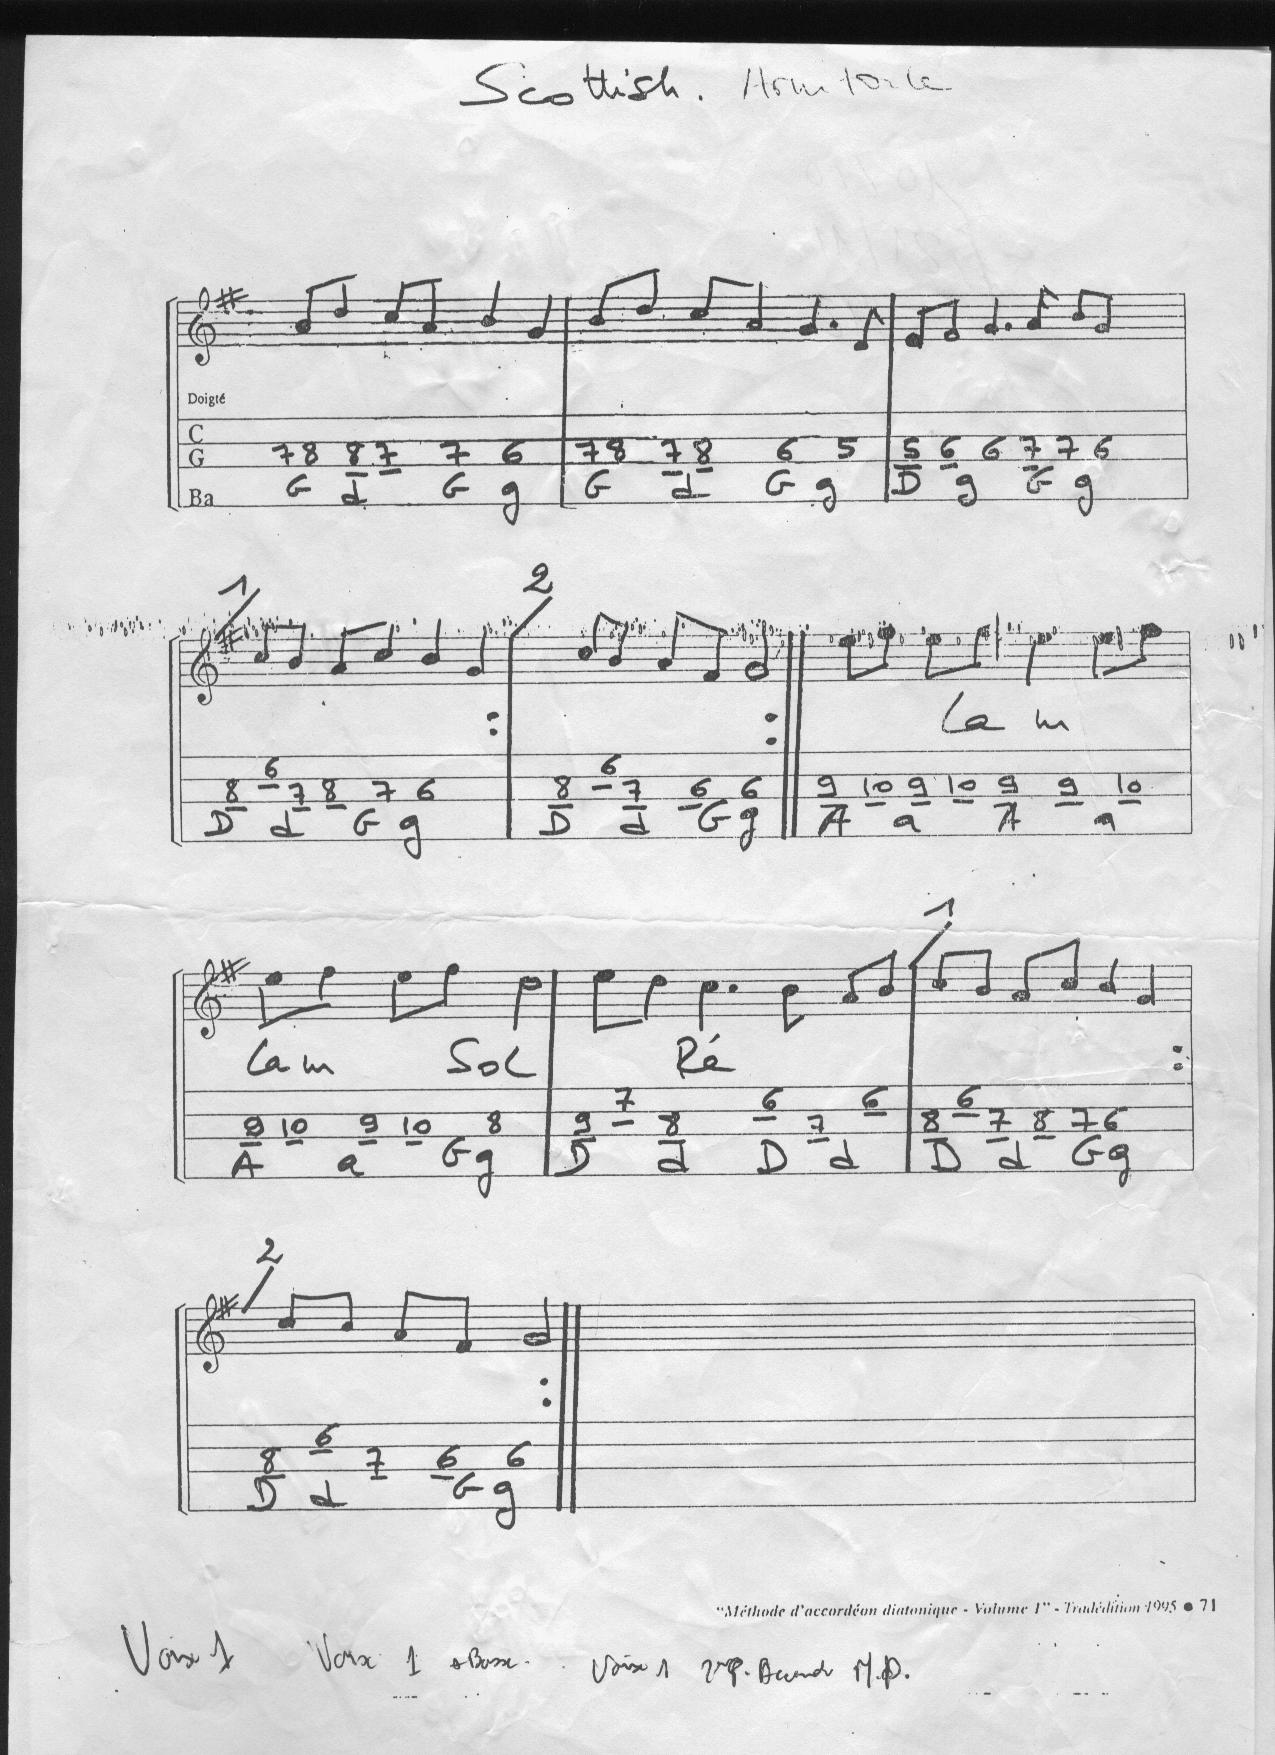 Scottish.
Doigté
C
G
Ba
7 8 8 7 7 6 7 8 7 8 6 5 5 6 6 7 7 6
G d G g G d G g D g G g
1 2
La m
6 6
8 7 8 7 6 8 7 6 6 9 10 9 10 9 9 10
D d G g D d G g A a A a
1
La m Sol Ré
7 6 6 6
9 10 9 10 8 9 8 7 8 7 8 7 6
A a G g D d D d D d G g
2
6
8 7 6 6
D d G g
"Méthode d'accordéon diatonique - Volume 1" - Tradédition 1995 • 71
Voix 1 Voix 1 Basse. Voix 1